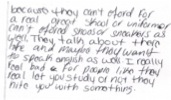 because they can't oford for
a real great shcol or uniformer
can't oford snecsor sneakers as
well. They talk about there
life and maybe they want
to speak english as well I really
feel bad for people like they
real let you study or not they
hite you with something.